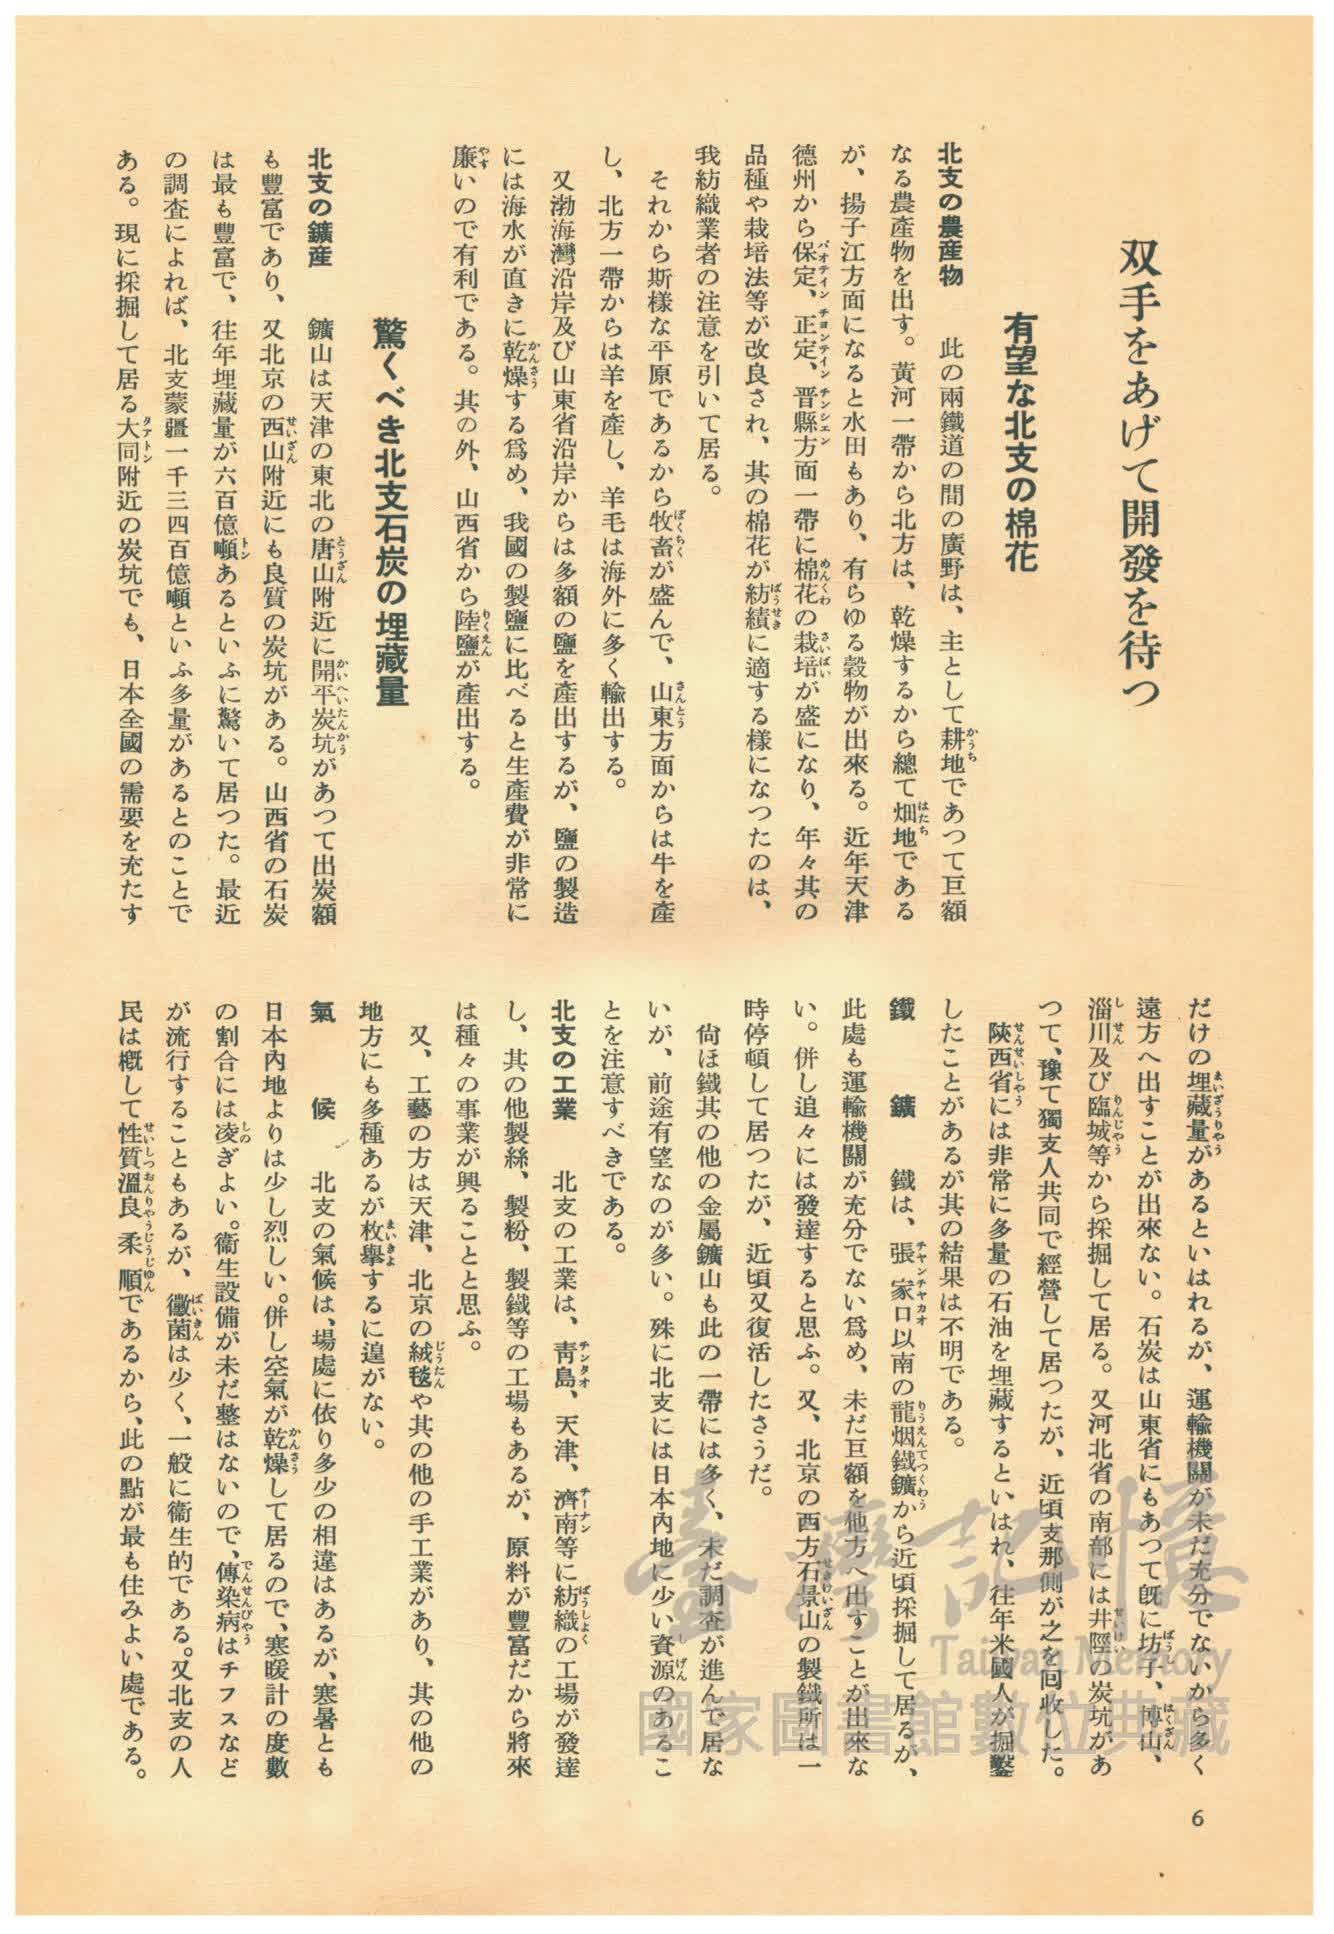 双手をあげて開發を待つ
有望な北支の棉花
北支の農産物　此の兩鐵道の間の廣野は、主として耕地であつて巨額
なる農産物を出す。黄河一帶から北方は、乾燥するから總て畑地である
が、揚子江方面になると水田もあり、有らゆる穀物が出來る。近年天津
德州から保定、正定、晋縣方面一帶に棉花の栽培が盛になり、年々其の
品種や栽培法等が改良され、其の棉花が紡績に適する様になつたのは、
我紡織業者の注意を引いて居る。
それから斯樣な平原であるから牧畜が盛んで、山東方面からは牛を產
し、北方一帶からは羊を產し、羊毛は海外に多く輸出する。
又渤海灣沿岸及び山東省沿岸からは多額の鹽を產出するが、鹽の製造
には海水が直きに乾燥する爲め、我國の製鹽に比べると生產費が非常に
廉いので有利である。其の外、山西省から陸鹽が產出する。
驚くべき北支石炭の埋藏量
北支の鑛産　鑛山は天津の東北の唐山附近に開平炭坑があつて出炭額
も豐富であり、又北京の西山附近にも良質の炭坑がある。山西省の石炭
は最も豐富で、往年埋藏量が六百億噸あるといふに驚いて居つた。最近
の調査によれば、北支蒙疆一千三四百億噸といふ多量があるとのことで
ある。現に採掘して居る大同附近の炭坑でも、日本全國の需要を充たす
だけの埋藏量があるといはれるが、運輸機關が未だ充分でないから多く
遠方へ出すことが出來ない。石炭は山東省にもあつて既に坊子、博山、
淄川及び臨城等から採掘して居る。又河北省の南部には井陘の炭坑があ
つて、豫て獨支人共同で經營して居つたが、近頃支那側が之を回收した。
陝西省には非常に多量の石油を埋藏するといはれ、往年米國人が掘鑿
したことがあるが其の結果は不明である。
鐵　鑛　鐵は、張家口以南の龍烟鐵鑛から近頃採掘して居るが、
此處も運輸機關が充分でない爲め、未だ巨額を他方へ出すことが出來な
い。併し追々には發達すると思ふ。又、北京の西方石景山の製鐵所は一
時停頓して居つたが、近頃又復活したさうだ。
尙ほ鐵其の他の金屬鑛山も此の一帶には多く、未だ調査が進んで居な
いが、前途有望なのが多い。殊に北支には日本內地に少い資源のあるこ
とを注意すべきである。
北支の工業　北支の工業は、靑島、天津、濟南等に紡織の工場が發達
し、其の他製絲、製粉、製鐵等の工場もあるが、原料が豐富だから將來
は種々の事業が興ることと思ふ。
又、工藝の方は天津、北京の絨毯や其の他の手工業があり、其の他の
地方にも多種あるが枚擧するに遑がない。
氣　候　北支の氣候は、場處に依り多少の相違はあるが、寒暑とも
日本內地よりは少し烈しい。併し空氣が乾燥して居るので、寒暖計の度數
の割合には凌ぎよい。衞生設備が未だ整はないので、傳染病はチフスなど
が流行することもあるが、黴菌は少く、一般に衞生的である。又北支の人
民は概して性質溫良柔順であるから、此の點が最も住みよい處である。
6
臺灣記憶
Taiwan Memory
國家圖書館數位典藏